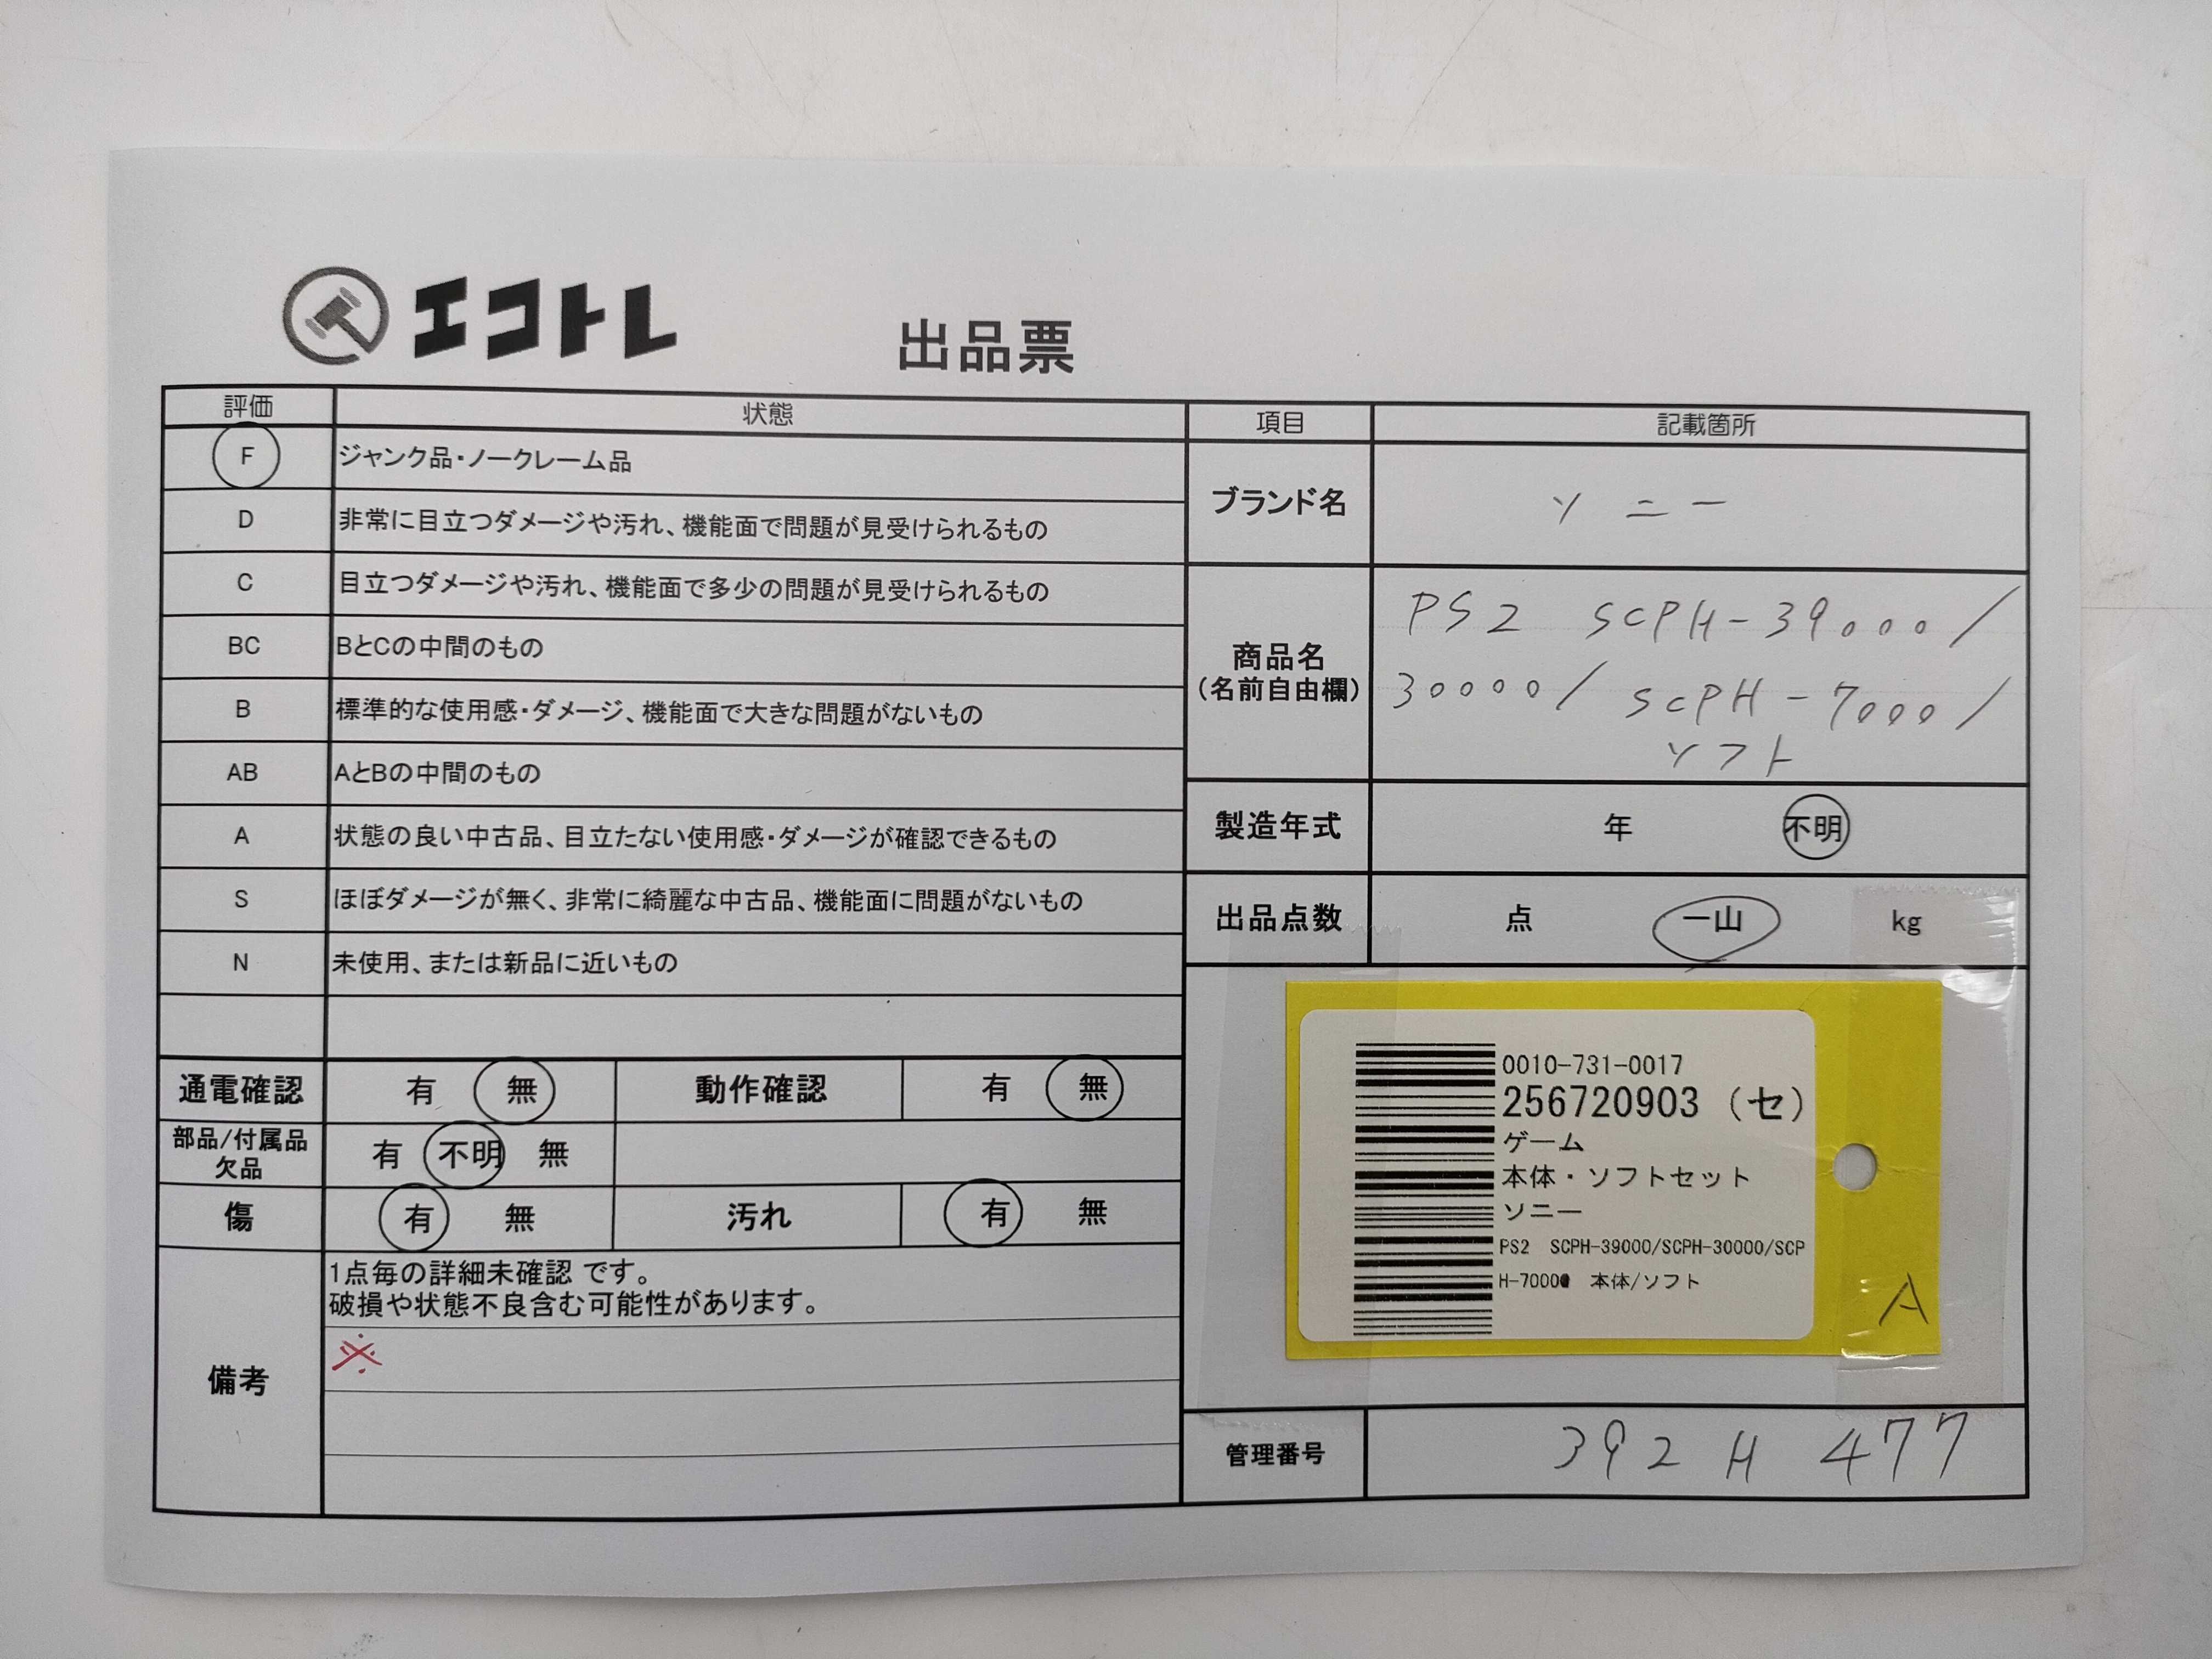 エコトレ
出品票
評価 状態
F ジャンク品・ノークレーム品
D 非常に目立つダメージや汚れ、機能面で問題が見受けられるもの
C 目立つダメージや汚れ、機能面で多少の問題が見受けられるもの
BC BとCの中間のもの
B 標準的な使用感・ダメージ、機能面で大きな問題がないもの
AB AとBの中間のもの
A 状態の良い中古品、目立たない使用感・ダメージが確認できるもの
S ほぼダメージが無く、非常に綺麗な中古品、機能面に問題がないもの
N 未使用、または新品に近いもの
通電確認 有 無 動作確認 有 無
部品/付属品
欠品
有 不明 無
傷 有 無 汚れ 有 無
備考
1点毎の詳細未確認 です。
破損や状態不良含む可能性があります。
※
項目 記載箇所
ブランド名 ソニー
商品名
(名前自由欄)
PS2 SCPH-39000/
30000/ SCPH-7000/
ソフト
製造年式 年 不明
出品点数 点 一山 kg
0010-731-0017
256720903 (セ)
ゲーム
本体・ソフトセット
ソニー
PS2 SCPH-39000/SCPH-30000/SCP
H-7000 本体/ソフト
A
管理番号 392 H 477